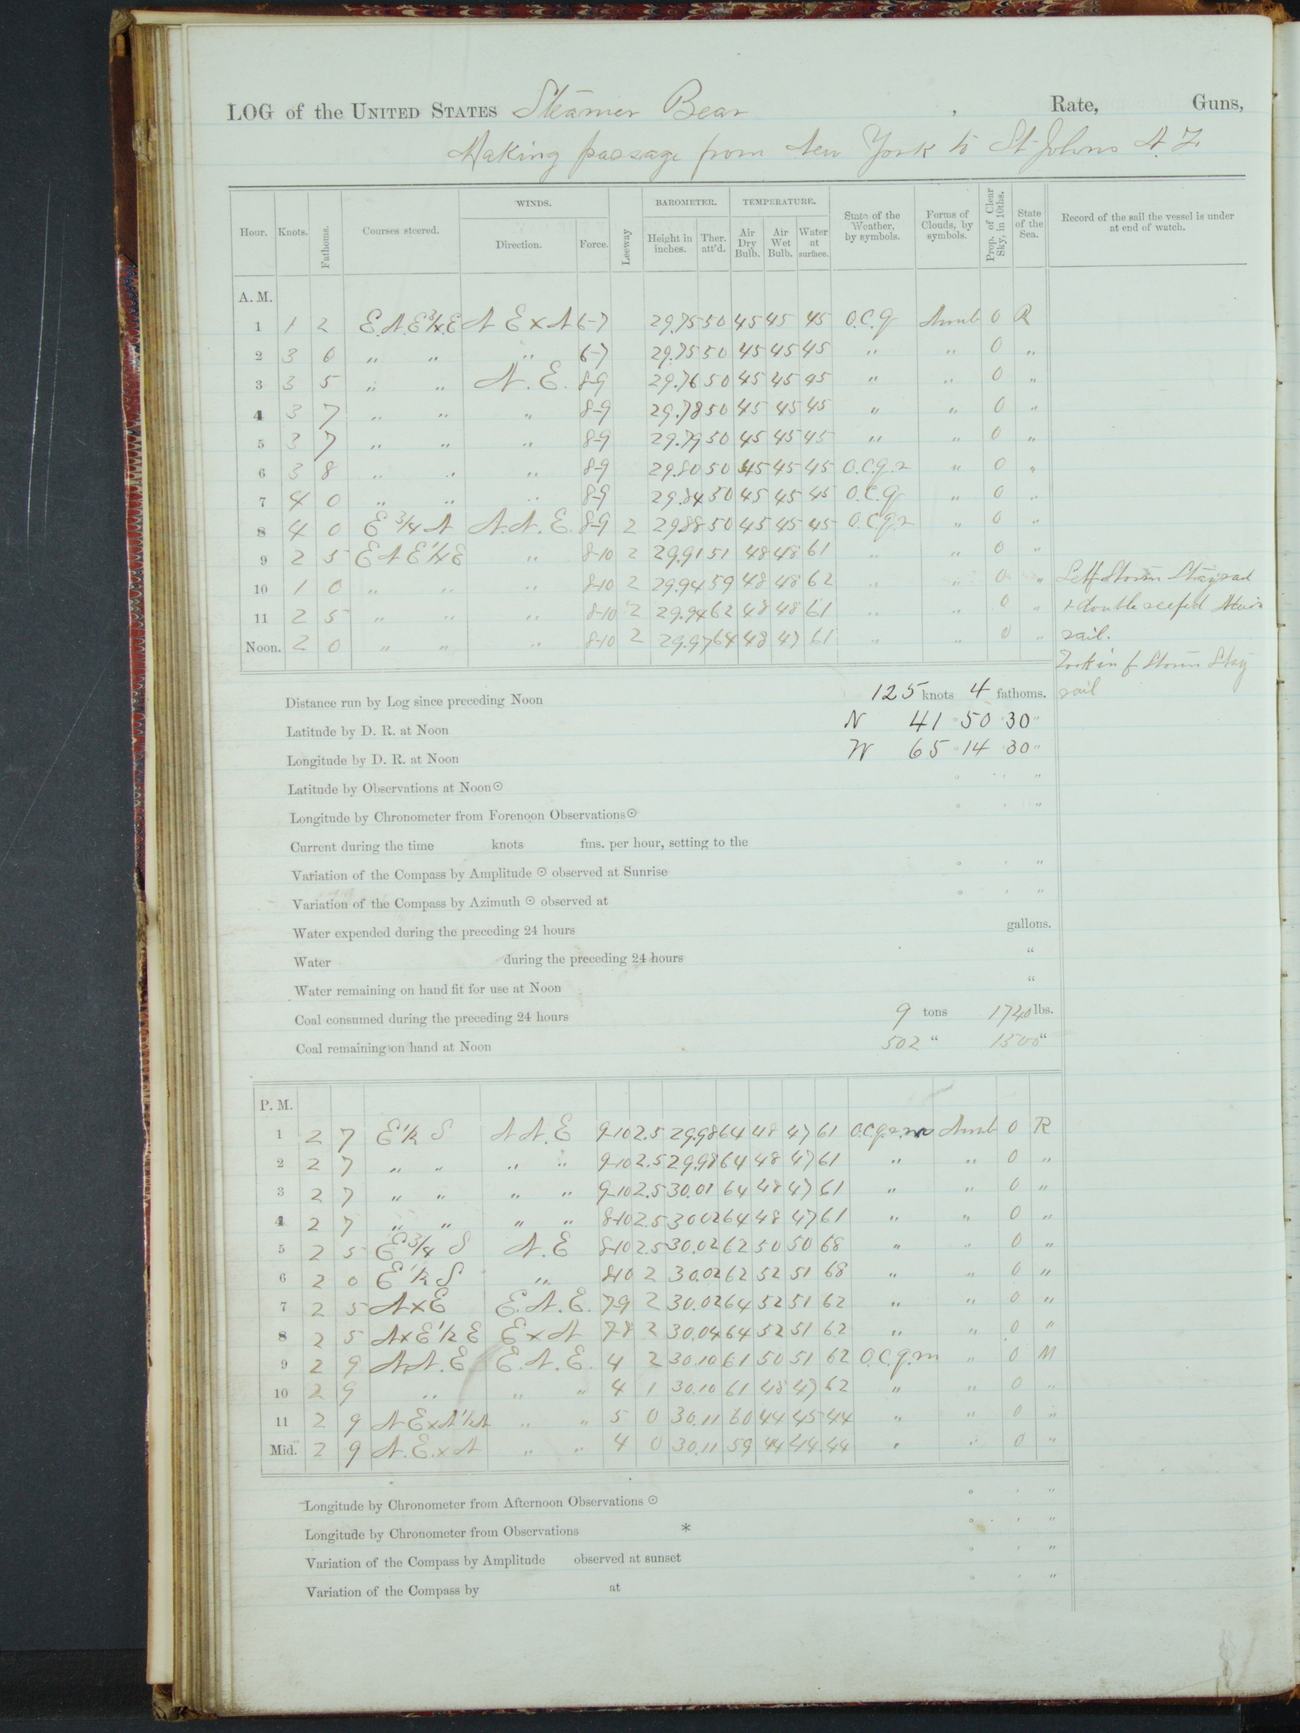 LOG of the UNITED STATES Steamer Bear , Rate, Guns,
Making passage from New York to St Johns N. F.
Hour. Knots. Fathoms. Courses steered. WINDS. Direction. Force. Leeway BAROMETER. Height in inches. Ther. att'd. TEMPERATURE. Air Dry Bulb. Air Wet Bulb. Water at surface. State of the Weather, by symbols. Forms of Clouds, by symbols. Prop. of Clear Sky, in 10ths. State of the Sea. Record of the sail the vessel is under at end of watch.
A. M.
1 1 2 E.N.E 3/4 E N E x N 6-7 29.75 50 45 45 45 O.C.Q Nimb 0 R
2 3 0 " " " 6-7 29.75 50 45 45 45 " " 0 "
3 3 5 " " N. E. 8-9 29.76 50 45 45 45 " " 0 "
4 3 7 " " " 8-9 29.78 50 45 45 45 " " 0 "
5 3 7 " " " 8-9 29.79 50 45 45 45 " " 0 "
6 3 8 " " " 8-9 29.80 50 45 45 45 O.C.Q.R " 0 "
7 4 0 " " " 8-9 29.84 50 45 45 45 O.C.Q " 0 "
8 4 0 E 3/4 N N.N.E. 8-9 2 29.88 50 45 45 45 O.C.Q.R " 0 "
9 2 5 E N E 1/4 E " 8-10 2 29.91 51 48 48 61 " " 0 "
10 1 0 " " " 8-10 2 29.94 59 48 48 62 " " 0 " Sett Storm Staysail
11 2 5 " " " 8-10 2 29.94 62 48 48 61 " " 0 " + double reefed Main
Noon. 2 0 " " " 8-10 2 29.97 64 48 47 61 " " 0 " sail.
Took in f Storm Stay
sail
Distance run by Log since preceding Noon 125 knots 4 fathoms.
Latitude by D. R. at Noon N 41 ° 50 ' 30 "
Longitude by D. R. at Noon W 65 ° 14 ' 30 "
Latitude by Observations at Noon ☉ ° ' "
Longitude by Chronometer from Forenoon Observations ☉ ° ' "
Current during the time knots fms. per hour, setting to the
Variation of the Compass by Amplitude ☉ observed at Sunrise ° ' "
Variation of the Compass by Azimuth ☉ observed at ° ' "
Water expended during the preceding 24 hours gallons.
Water during the preceding 24 hours "
Water remaining on hand fit for use at Noon "
Coal consumed during the preceding 24 hours 9 tons 1740 lbs.
Coal remaining on hand at Noon 502 " 1500 "
P. M.
1 2 7 E 1/2 S N N. E 9-10 2.5 29.98 64 48 47 61 O.C.Q.R.M Nimb 0 R
2 2 7 " " " " 9-10 2.5 29.98 64 48 47 61 " " 0 "
3 2 7 " " " " 9-10 2.5 30.01 64 48 47 61 " " 0 "
4 2 7 " " " " 8-10 2.5 30.02 64 48 47 61 " " 0 "
5 2 5 E 3/4 S N. E 8-10 2.5 30.02 62 50 50 68 " " 0 "
6 2 0 E 1/2 S " 8-10 2 30.02 62 52 51 68 " " 0 "
7 2 5 N x E E. N. E. 7-9 2 30.02 64 52 51 62 " " 0 "
8 2 5 N x E 1/2 E E x N 7-8 2 30.04 64 52 51 62 " " 0 "
9 2 9 N.N. E E. N. E. 4 2 30.10 61 50 51 62 O.C.Q.M " 0 M
10 2 9 " " " 4 1 30.10 61 48 47 62 " " 0 "
11 2 9 N E x N 1/2 N " " 5 0 30.11 60 44 45 44 " " 0 "
Mid. 2 9 N. E. x N " " 4 0 30.11 59 44 44 44 " " 0 "
Longitude by Chronometer from Afternoon Observations ☉ ° ' "
Longitude by Chronometer from Observations * ° ' "
Variation of the Compass by Amplitude observed at sunset ° ' "
Variation of the Compass by at ° ' "